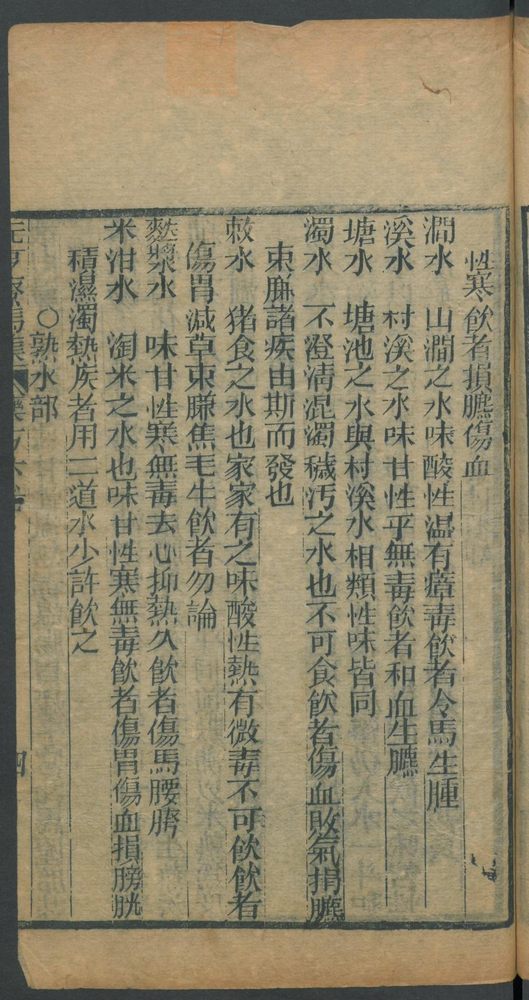 性寒飲者損臕傷血
澗水　山澗之水味酸性温有瘴毒飲者令馬生腫
溪水　村溪之水味甘性平無毒飲者和血生臕
塘水　塘池之水與村溪水相類性味皆同
濁水　不澄清混濁穢汚之水也不可食飲者傷血敗氣損臕
束膁諸疾由斯而發也
㪣水　猪食之水也家家有之味酸性熱有微毒不可飲飲者
傷胃減草束膁焦毛牛飲者勿論
䴬漿水　味甘性寒無毒去心抑熱久飲者傷馬腰膀
米泔水　淘米之水也味甘性寒無毒飲者傷胃傷血損膀胱
積濕濁熱疾者用二道水少許飲之
〇熟水部
元亨療馬集　藥方六卷　四